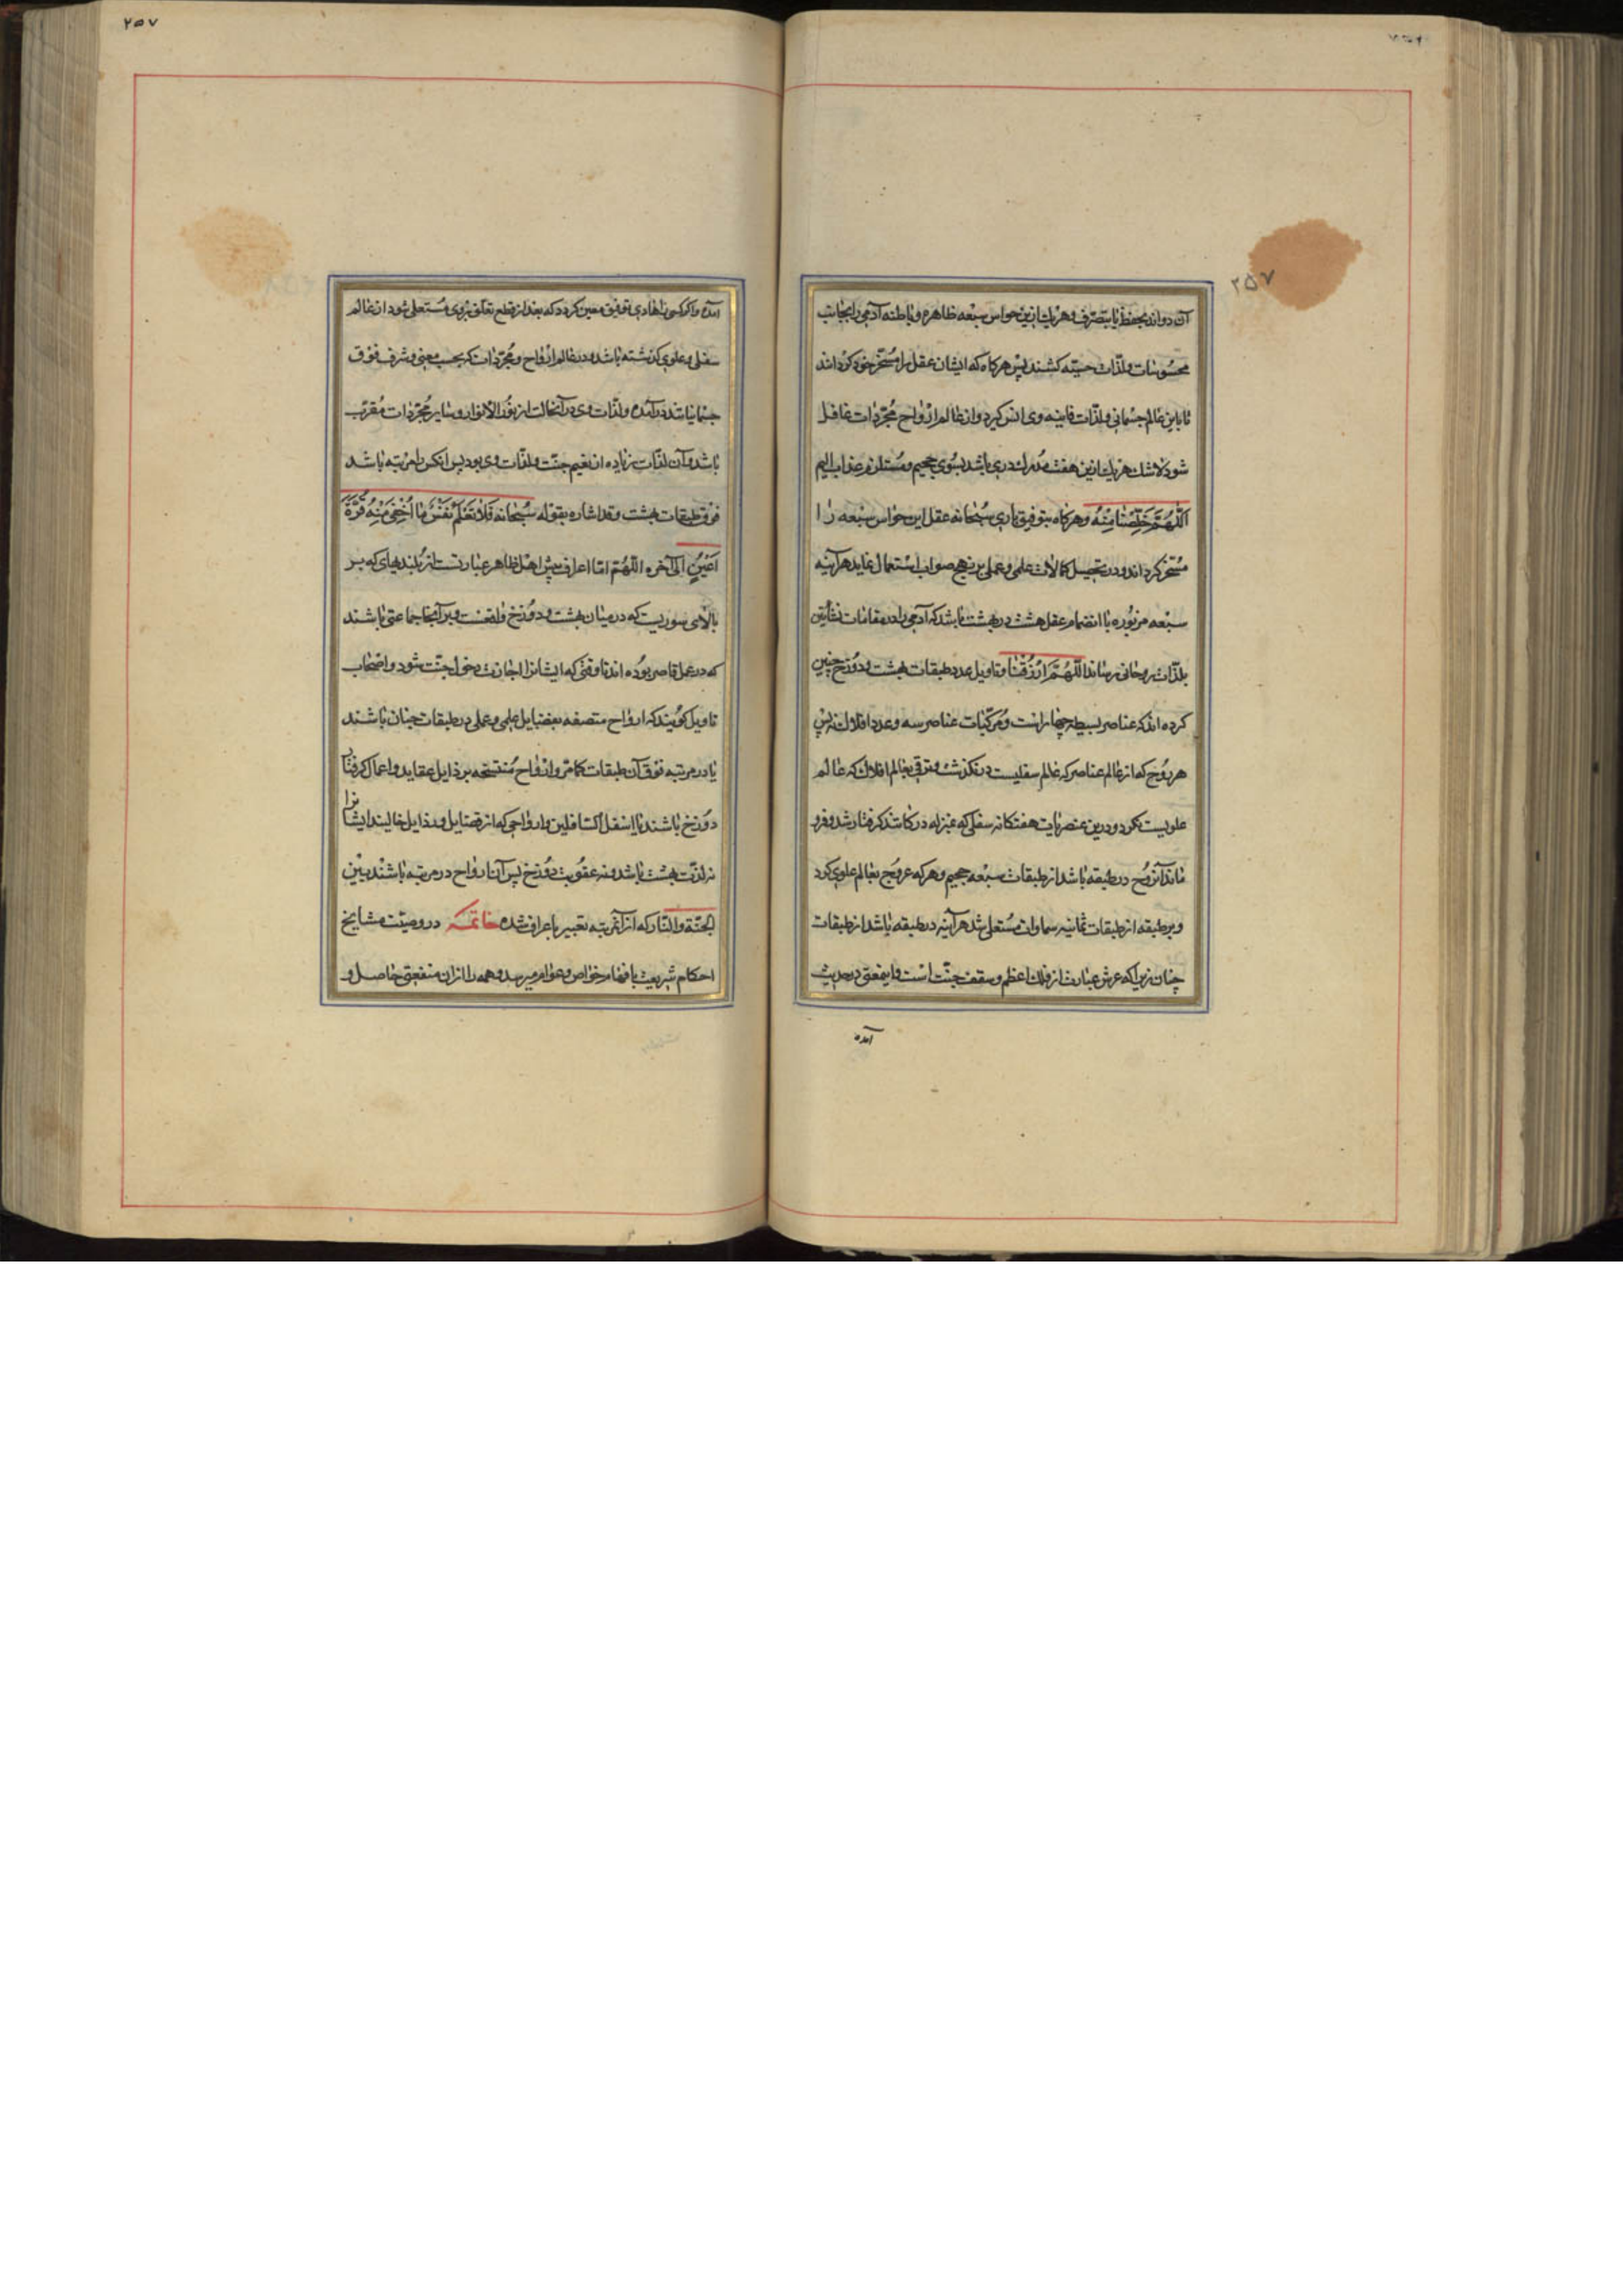 ۲۵۷
آن دواند بحفظ یا بتصرف و هر یک ازین حواس سبعه ظاهره و باطنه آدمی را بجانب
محسوسات و لذات حسیه کشند پس هر کاه که ایشان عقل را مسخر خود کردانند
تا باین عالم جسمانی و لذات فانیه وی انس کیرد و از عالم ارواح مجردات غافل
شود لاشک هر یک ازین هفت مدرک دری باشد بسوی جحیم و مستلزم عذاب الیم
اللهم خلصنا منه و هر کاه بتوفیق باری سبحانه عقل این حواس سبعه را
مسخر کرداند و در تحصیل کمالات علمی و عملی بر نهج صواب استعمال نماید هر آینه
سبعه مزبوره با انضمام عقل هشت در بهشت باشد که آدمی را در مقامات نشأتین
بلذات روحانی رساند اللهم ارزقنا و تاویل عدد طبقات بهشت و دوزخ چنین
کرده اند که عناصر بسیطه چهار است و مرکبات عناصر سه و عدد افلاک نه پس
هر روح که از عالم عناصر که عالم سفلیست در نکذشت و ترقی بعالم افلاک که عالم
علویست نکرد و درین عنصریات هفتکانه سفلی که بمنزله درکاتند کرفتار شد و فرو
ماند آنروح در طبقه باشد از طبقات سبعه جحیم و هر که عروج بعالم علوی کرد
و بر طبقه از طبقات ثمانیه سماوات مستعلی شد هر آینه در طبقه باشد از طبقات
جنان زیرا که عرش عبارت از فلک اعظم و سقف جنت است و اینمعنی در حدیث
آمده
۲۵۷
آمده و اکر کسی را هادی توفیق معین کردد که بعد از قطع تعلق بروی مستعلی شود از عالم
سفلی و علوی کذشته باشد و در عالم ارواح و مجردات که بحسب معنی و شرف فوق
جسمانیاتند در آمده و لذات وی در آنحالت از نور الانوار و سایر مجردات مقرب
باشد و آن لذات زیاده از نعیم جنت و لذات وی بود پس انکس را مرتبه باشد
فوق طبقات بهشت و قد اشاره بقوله سبحانه فَلَا تَعْلَمُ نَفْسٌ مَا أُخْفِيَ مِنْهُ قُرَّةَ
أَعْيُنٍ الی آخره اللهم اما اعراف پیش اهل ظاهر عبارتست از بلندیهای که بر
بالای سوریست که در میان بهشت و دوزخ واقعست و بر آنجا جماعتی باشند
که در عمل قاصر بوده اند تا وقتی که ایشانرا اجازت دخول جنت شود و اصحاب
تاویل کویند که ارواح متصفه بفضایل علمی و عملی در طبقات جنان باشند
یا در مرتبه فوق آن طبقات کما مر و ارواح متنسخه برذایل عقاید و اعمال کرفتار
دوزخ باشند یا اسفل السافلین و ارواحی که از فضایل و رذایل خالیند ایشانرا
نه لذت بهشت باشد و نه عقوبت دوزخ پس آن ارواح در مرتبه باشند بین
الجنة والنار که از آنمرتبه تعبیر باعراف شده خاتمه در وصیت مشایخ
احکام شریعت بافهام خواص و عوام میرسد و همه را ازان منفعتی حاصل و